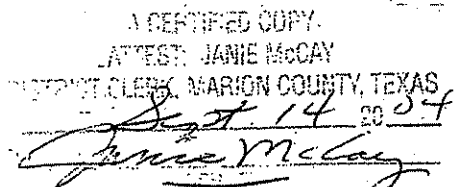 A CERTIFIED COPY
ATTEST: JANIE McCAY
DISTRICT CLERK, MARION COUNTY, TEXAS
Sept. 14 20 04
Janie McCay